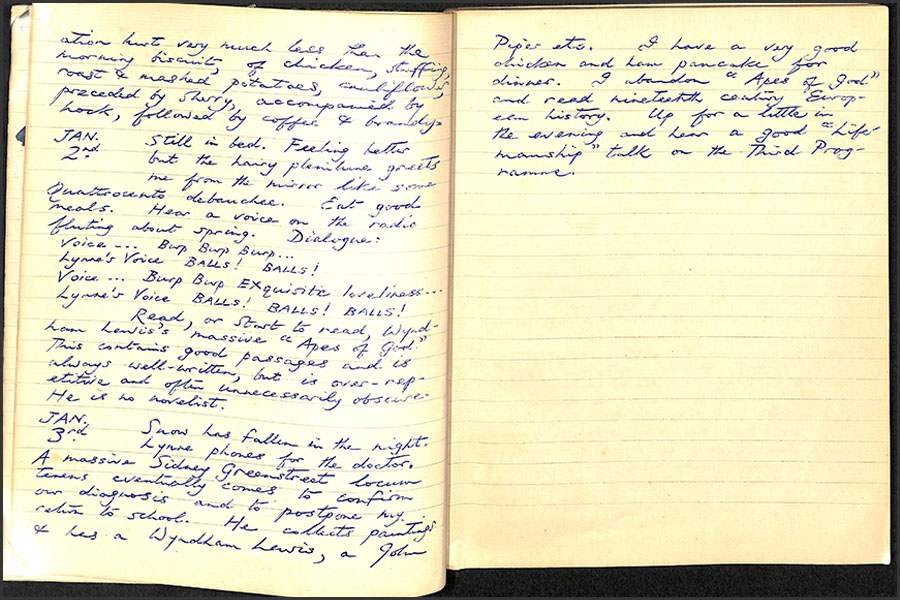 ation hurt very much less than the
morning biscuit, of chicken, stuffing,
roast & mashed potatoes, cauliflower,
preceded by sherry, accompanied by
hock, followed by coffee & brandy.
JAN. 2nd Still in bed. Feeling better
but the hairy plenilune greets
me from the mirror like some
Quattrocento debauchee. Eat good
meals. Hear a voice on the radio
fluting about spring. Dialogue:
Voice ... Burp Burp Burp...
Lynne's Voice BALLS! BALLS!
Voice ... Burp Burp EXquisitic loveliness...
Lynne's Voice BALLS! BALLS! BALLS!
Read, or start to read, Wynd-
ham Lewis's massive "Apes of God"
This contains good passages and is
always well-written, but is over-rep-
etitive and often unnecessarily obscure.
He is no novelist.
JAN. 3rd Snow has fallen in the night.
Lynne phones for the doctor.
A massive Sidney Greenstreet locum
tenens eventually comes to confirm
our diagnosis and to postpone my
return to school. He collects paintings
& has a Wyndham Lewis, a John
Piper etc. I have a very good
chicken and ham pancake for
dinner. I abandon "Apes of God"
and read nineteenth century Europ-
ean history. Up for a little in
the evening and hear a good "Life-
manship" talk on the Third Prog-
ramme.